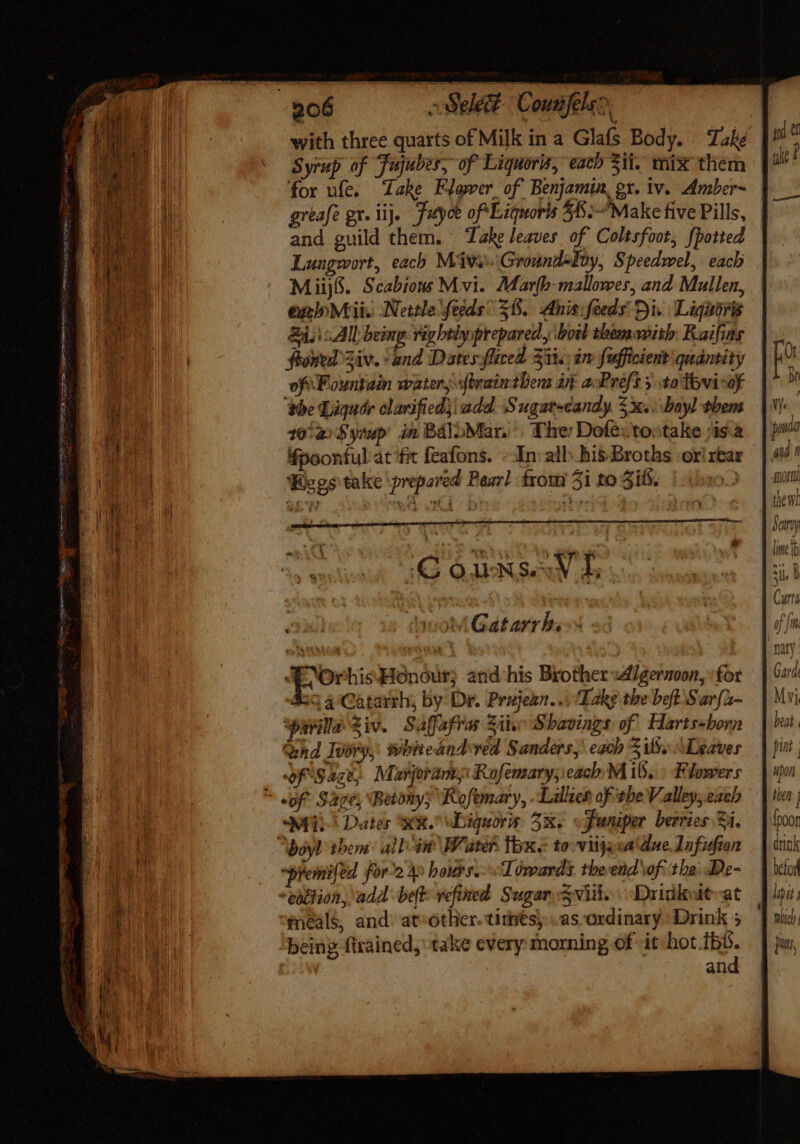 206 Select Counsels
with three quarts of Milk in a Glaſs Body. Take
Syrup of Jujubes, of Liquoris, each ℥ii. mix them
for uſe. Take Flower of Benjamin, gr. iv. Amber-
greaſe gr. iij. Juyce of Liquoris ℥ß. Make five Pills,
and guild them. Take leaves of Coltsfoot, ſpotted
Lungwort, each Miv. Ground-Ivy, Speedwel, each
Miijß. Scabious Mvi. Marſh-mallowes, and Mullen,
each Mii. Nettle ſeeds ℥ß. Anis-ſeeds Ʒi. Liquoris
℥i. All being rightly prepared, boil them with Raiſins
ſtoned ℥iv. and Dates ſliced ℥ii. in ſufficient quantity
of Fountain water, ſtrain them in a Preſs; to ℔vi of
the Liquor clarified, add Sugar-candy ℥x. boyl them
to a Syrup in Bal. Mar. The Doſe to take is a
ſpoonful at fit ſeaſons. In all his Broths or rear
Eggs take prepared Pearl from ℨi to ℨiß.
Couns. VI.
Catarrh.
For his Honour, and his Brother Algernoon, for
a Catarrh, by Dr. Prujean. Take the beſt Sarſa-
parilla ℥iv. Saſſafras ℥ii. Shavings of Harts-horn
and Ivory, white and red Sanders, each ℥iß. Leaves
of Sage, Marjoram, Roſemary, each Miß. Flowers
of Sage, Betony, Roſemary, Lillies of the Valley, each
Mii. Dates xx. Liquoris ℥x. Juniper berries ℥i.
boyl them all in Water ℔x. to viij. a due Infuſion
premiſed for 24 hours. Towards the end of the De-
coction, add beſt refined Sugar ℥viii. Drink it at
meals, and at other times, as ordinary Drink;
being ſtrained, take every morning of it hot ℔ß.
and